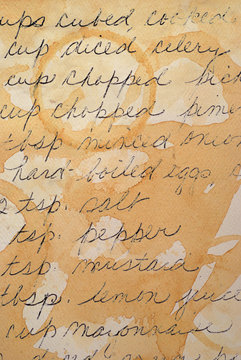 ups cubed, cooked
cup diced celery
cup chopped
cup chopped
tbsp minced onion
hard-boiled eggs,
2 tsp. salt
tsp. pepper
tsp. mustard
tbsp. lemon juice
cup mayonnaise